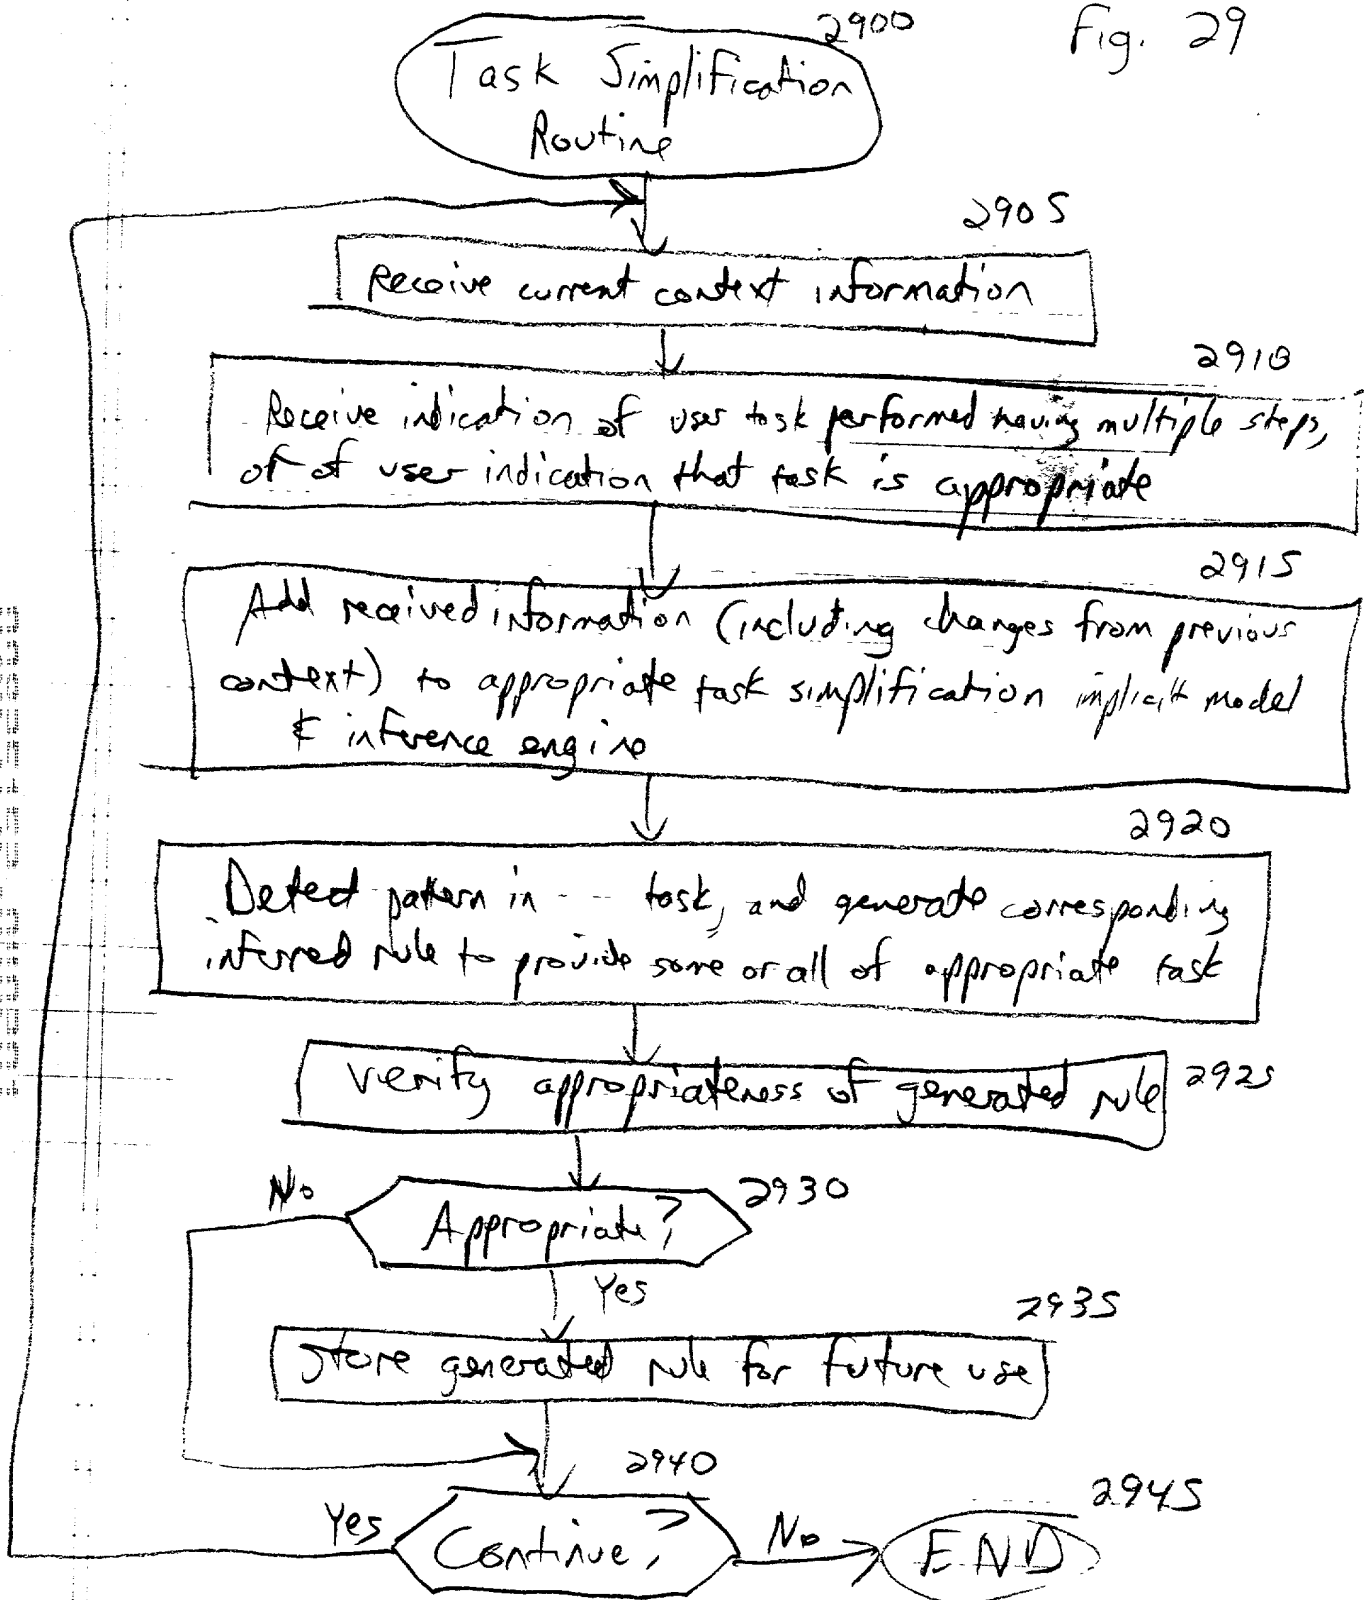 2900
Fig. 29
Task Simplification
Routine
2905
Receive current context information
2910
Receive indication of user task performed having multiple steps,
or of user indication that task is appropriate
2915
Add received information (including changes from previous
context) to appropriate task simplification implicit model
& inference engine
2920
Detect pattern in -- task, and generate corresponding
inferred rule to provide some or all of appropriate task
Verify appropriateness of generated rule
2925
No
Appropriate?
2930
Yes
2935
Store generated rule for future use
2940
2945
Yes
Continue?
No
END